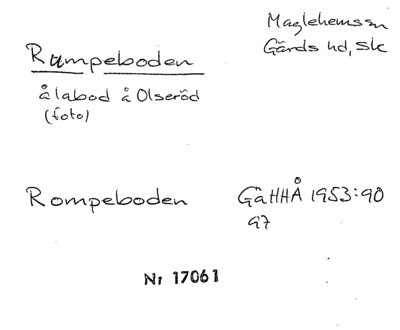 Maglehems sn
Gärds hd, Sk
Rampeboden
ålabod å Olseröd
(foto)
Rompeboden
GäHHÅ 1953:90
97
Nr 17061